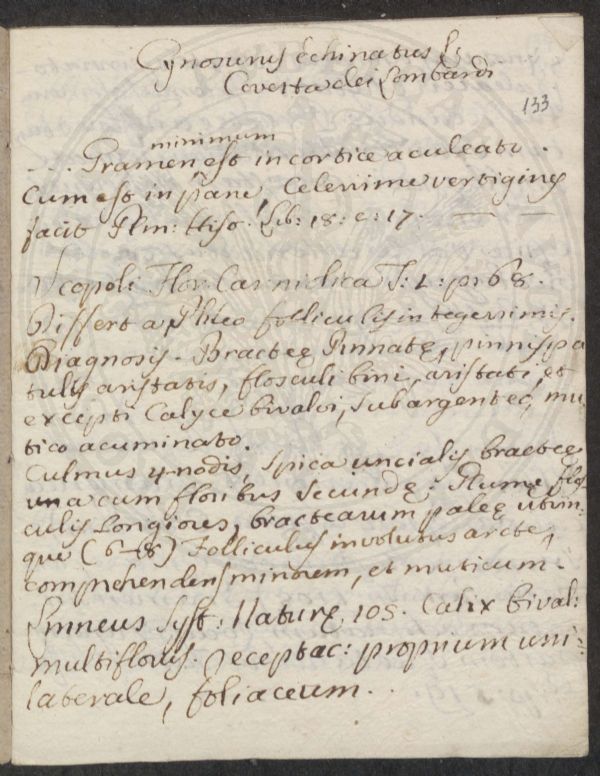 Cynosurus echinatus L:
Covetta dei Lombardi
133
minimum
... Gramen, est in cortice aculeato.
Cum est in pane, Celerrime vertigines
facit Plin: Hist. Lib: 18: c: 17. — —
Scopoli. Flor. Carniolica T: 1: p: 68.
Differt a Phleo folliculis integerrimis.
Diagnosis. Bracteę Pinnatę, pinnis pa
tulis aristatis, flosculi bini, aristati, et
excepti Calyce bivalvi, subargenteo, mu
tico acuminato.
Culmus 4 nodis, spica uncialis bracteę
una cum floribus secundę. Glumę flos
culis Longiores, bractearum paleę utrin
que (6-8) Folliculus involutus arcte,
comprehendens minorem, et muticum.
Linneus Syst: Naturę 105. Calix bival:
multiflorus. Receptac: proprium uni
laterale, foliaceum..